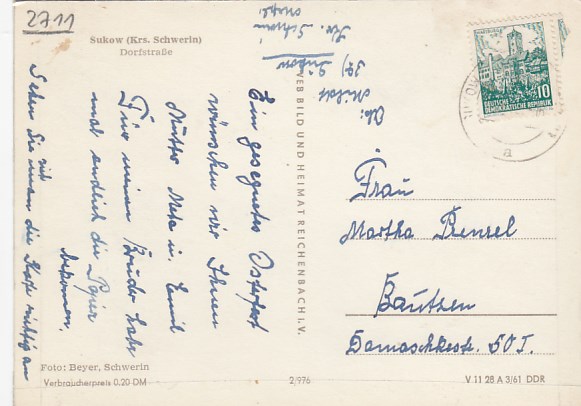 2711
Sukow (Krs. Schwerin)
Dorfstraße
Ab:
Sukow
Kr. Schwerin
DEUTSCHE
DEMOKRATISCHE REPUBLIK
10
a
Ein gesegnetes Osterfest
wünschen wir Ihnen
Mutter Meta u. Emil
Für meinen Bruder habe
mal endlich die
bekommen.
Sehen Sie mal
die Karte richtig an
VEB BILD UND HEIMAT REICHENBACH I. V.
Frau
Martha Renzel
Bautzen
Damaschkestr. 50 I.
Foto: Beyer, Schwerin
Verbraucherpreis 0.20 DM
2/976
V 11 28 A 3/61 DDR